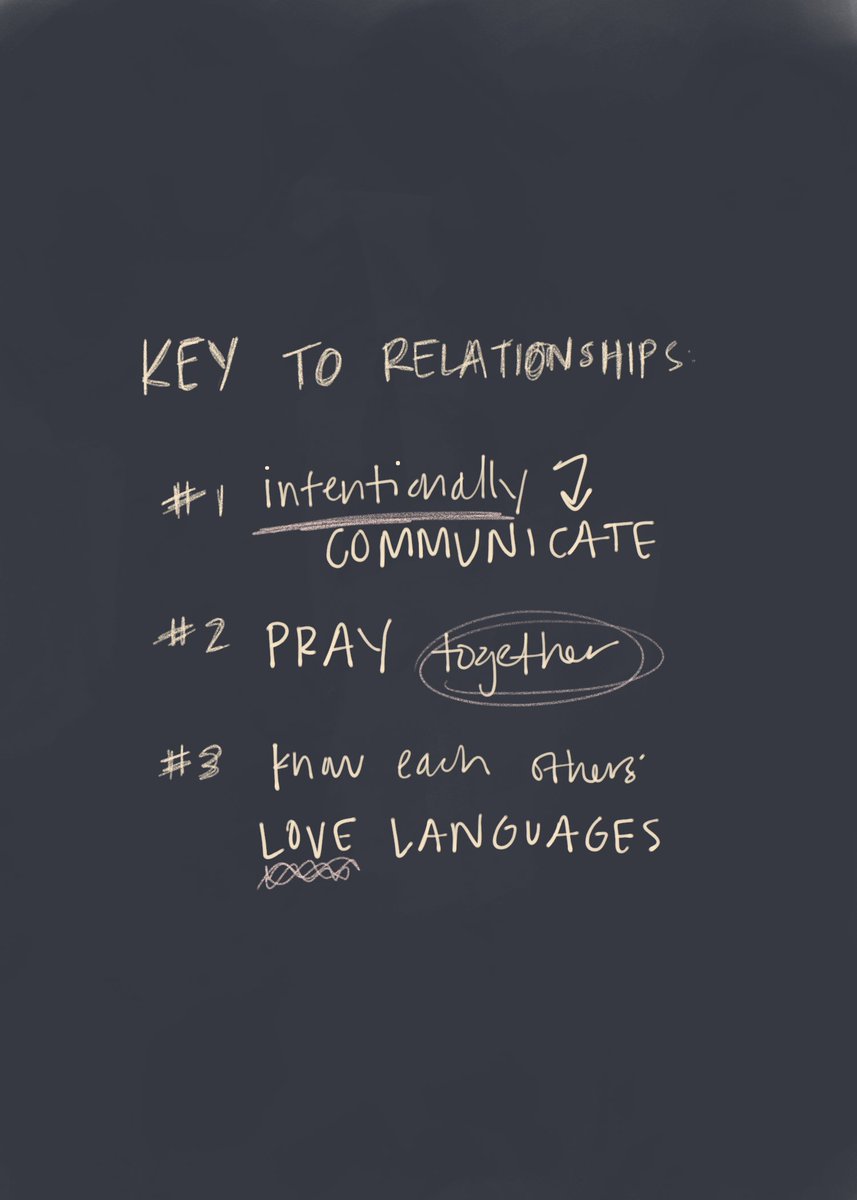 KEY TO RELATIONSHIPS:
#1 intentionally
COMMUNICATE
#2 PRAY together
#3 know each others'
LOVE LANGUAGES